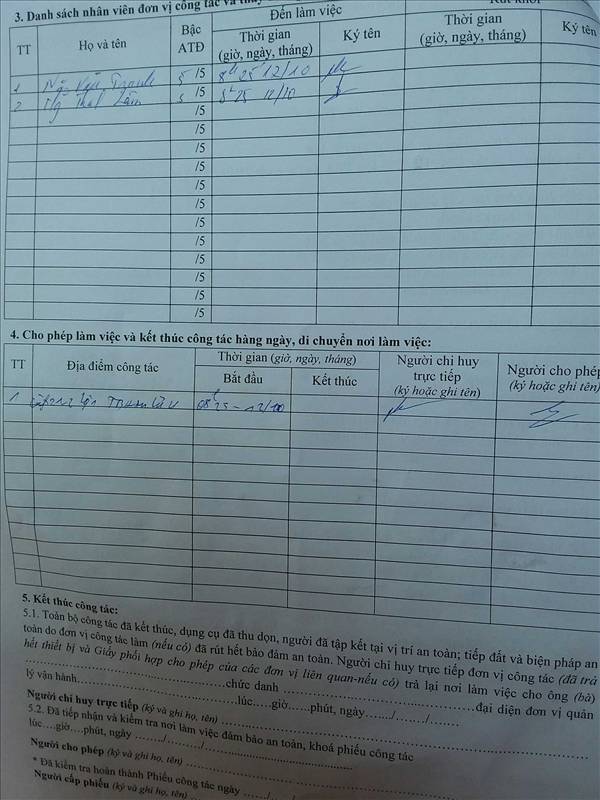 3. Danh sách nhân viên đơn vị công tác và
TT Họ và tên Bậc ATĐ Đến làm việc
Thời gian (giờ, ngày, tháng) Ký tên Thời gian (giờ, ngày, tháng) Ký tên
1 5 /5 8h 25' 12/10
2 5 /5 8h 25 12/10
/5
/5
/5
/5
/5
/5
/5
/5
/5
/5
/5
/5
4. Cho phép làm việc và kết thúc công tác hàng ngày, di chuyển nơi làm việc:
TT Địa điểm công tác Thời gian (giờ, ngày, tháng) Người chỉ huy trực tiếp (ký hoặc ghi tên) Người cho phép (ký hoặc ghi tên)
Bắt đầu Kết thúc
1 08h25 - 12/10
5. Kết thúc công tác:
5.1. Toàn bộ công tác đã kết thúc, dụng cụ đã thu dọn, người đã tập kết tại vị trí an toàn; tiếp đất và biện pháp an
toàn do đơn vị công tác làm (nếu có) đã rút hết bảo đảm an toàn. Người chỉ huy trực tiếp đơn vị công tác (đã trả
hết thiết bị và Giấy phối hợp cho phép của các đơn vị liên quan-nếu có) trả lại nơi làm việc cho ông (bà)
chức danh đại diện đơn vị quản
lý vận hành lúc....giờ....phút, ngày......./......./.......
Người chỉ huy trực tiếp (ký và ghi họ, tên)
5.2. Đã tiếp nhận và kiểm tra nơi làm việc đảm bảo an toàn, khoá phiếu công tác
lúc....giờ....phút, ngày......./......./.......
Người cho phép (ký và ghi họ, tên)
* Đã kiểm tra hoàn thành Phiếu công tác ngày
Người cấp phiếu (ký và ghi họ, tên)